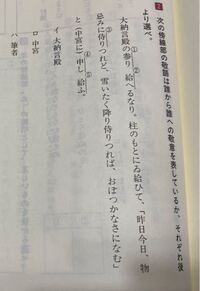 2 次の傍線部の敬語は誰から誰への敬意を表しているか、それぞれ後
より選べ。
大納言殿の参り給へるなり。柱のもとにゐ給ひて、「昨日今日、物
忌みに侍りつれど、雪いたく降り侍りつれば、おぼつかなさになむ」
と(中宮に)申し給ふ。
① ② ③ ④ ⑤
イ 大納言殿
ロ 中宮
ハ 筆者